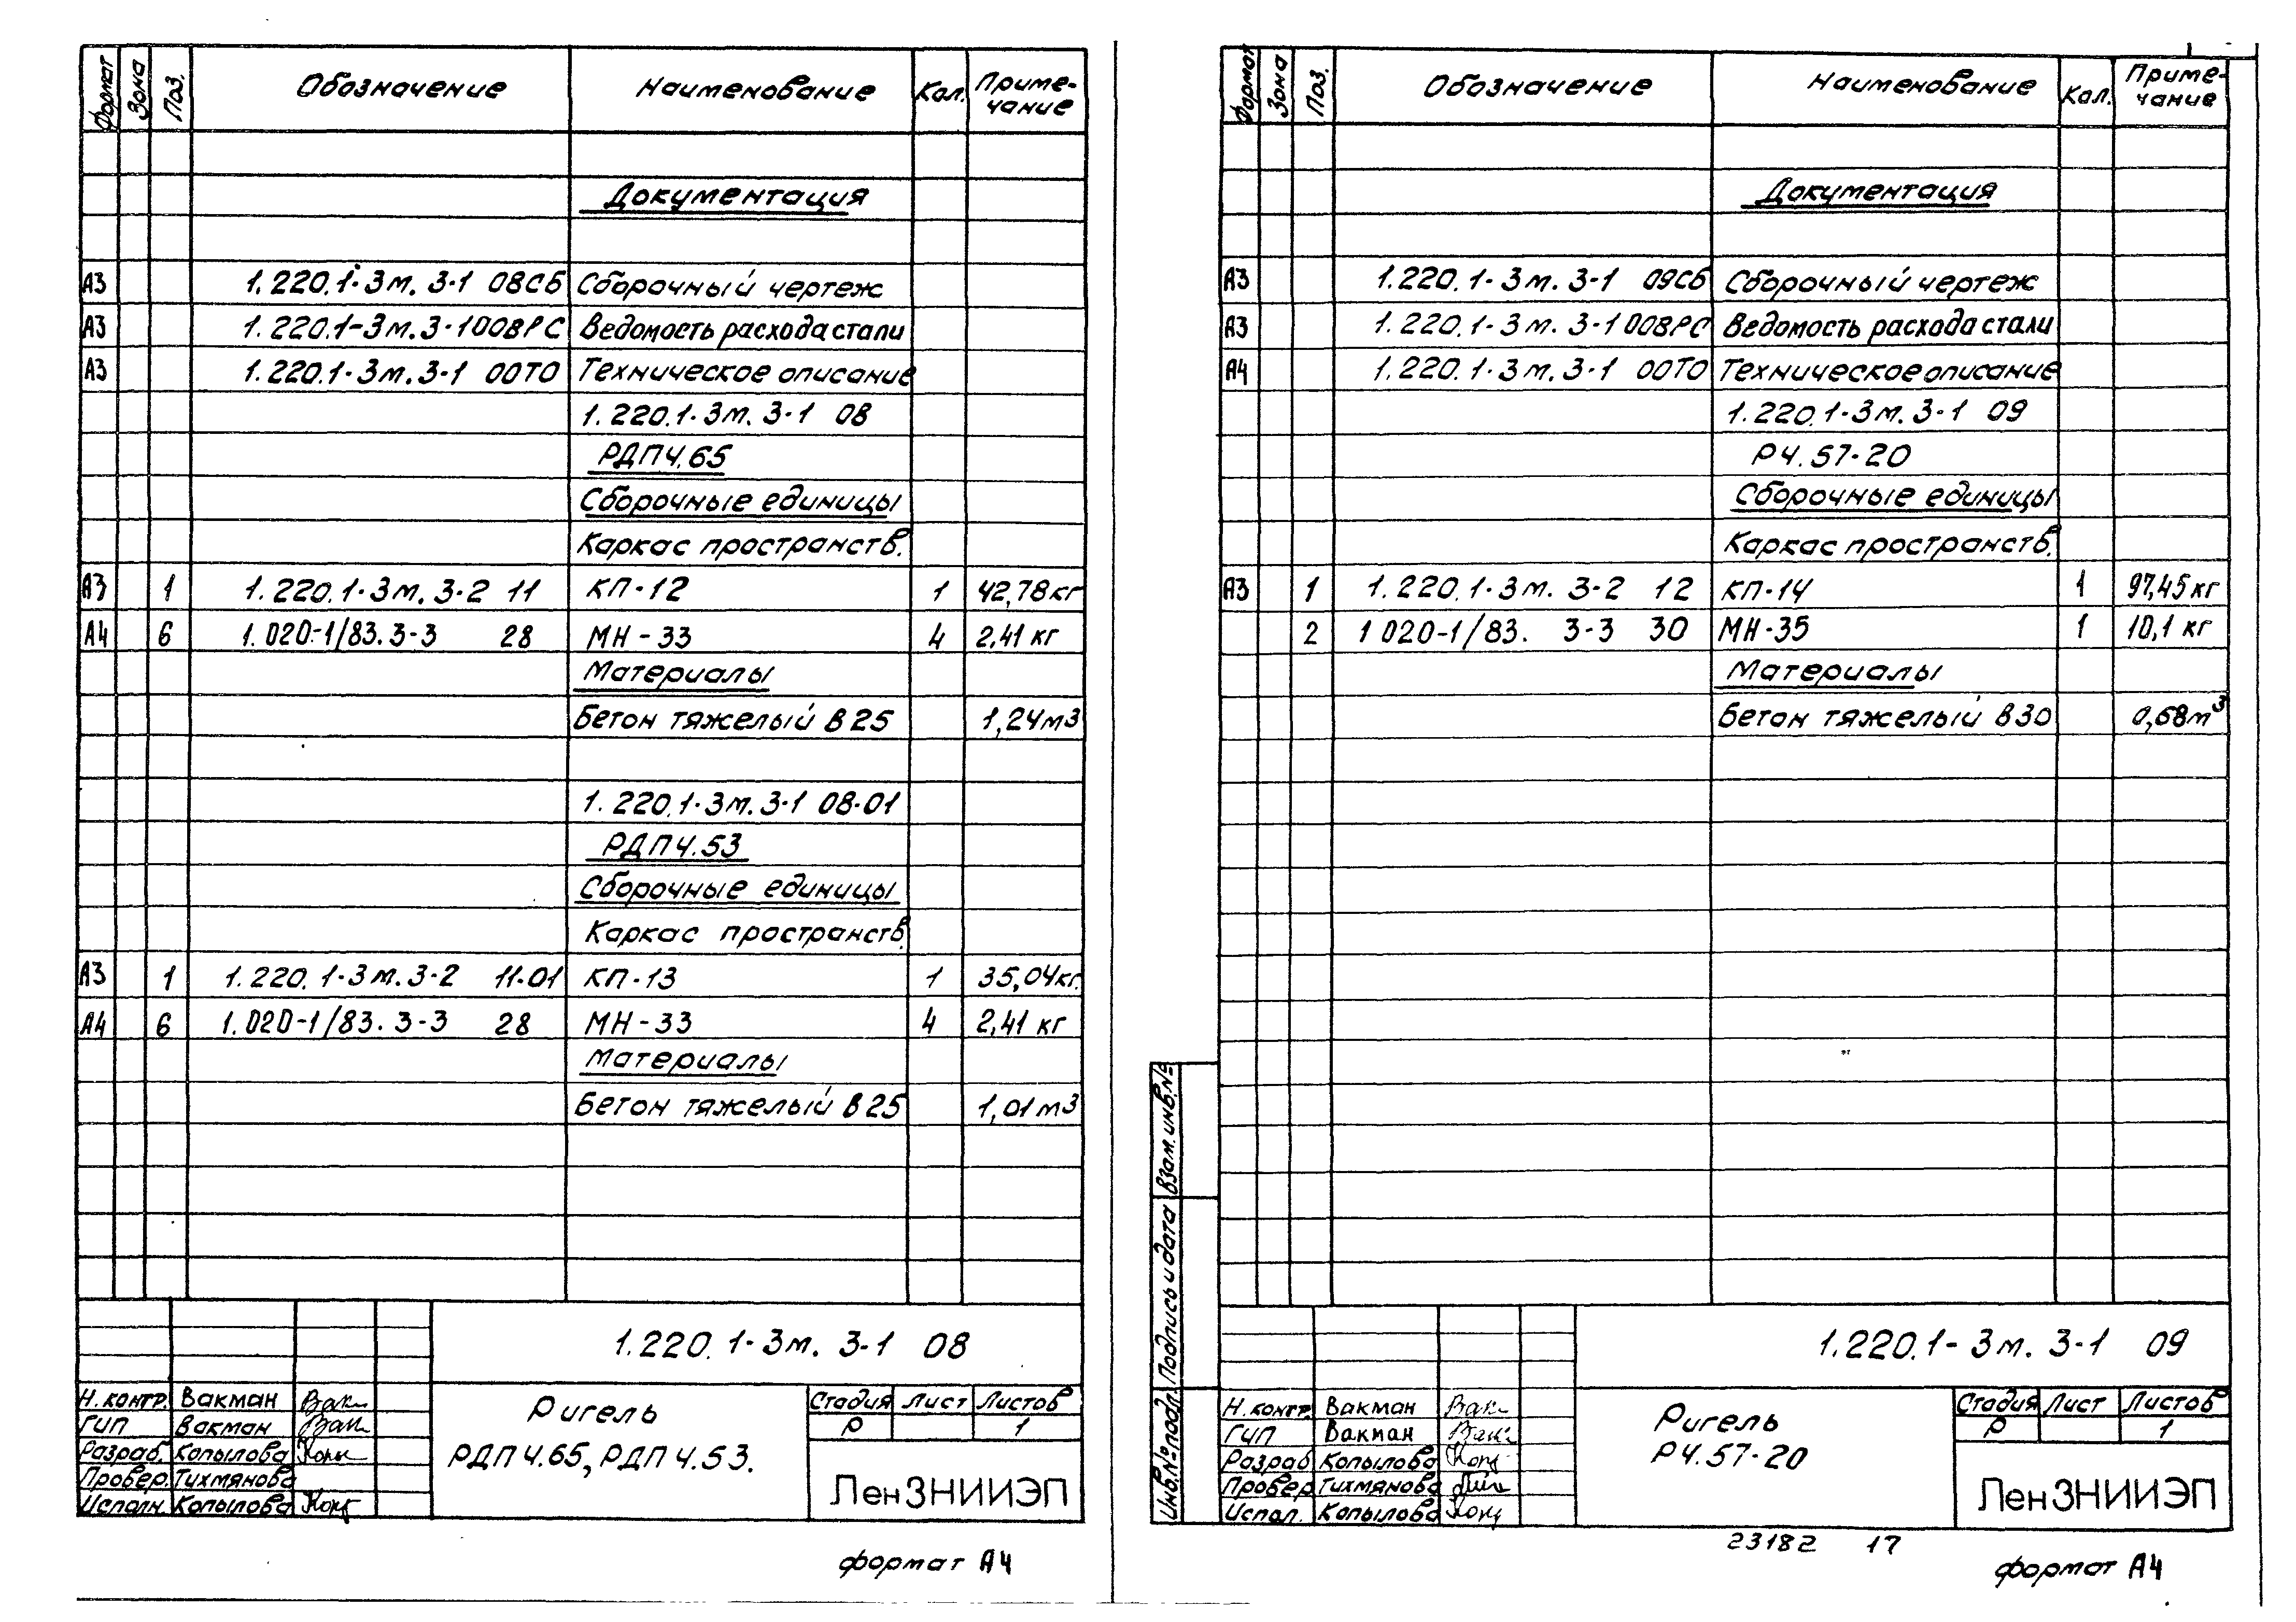 Формат Зона Поз. Обозначение Наименование Кол. Приме-
чание
Документация
А3 1.220.1-3м. 3-1 08СБ Сборочный чертеж
А3 1.220.1-3м.3-1 00ВРС Ведомость расхода стали
А3 1.220.1-3м.3-1 00ТО Техническое описание
1.220.1-3м. 3-1 08
РДП4.65
Сборочные единицы
Каркас пространств.
А3 1 1.220.1-3м. 3-2 11 КП-12 1 42,78кг
А4 6 1.020-1/83.3-3 28 МН-33 4 2,41 кг
Материалы
Бетон тяжелый В25 1,24м3
1.220.1-3м.3-1 08-01
РДП4.53
Сборочные единицы
Каркас пространств.
А3 1 1.220.1-3м.3-2 11-01 КП-13 1 35,04кг.
А4 6 1.020-1/83.3-3 28 МН-33 4 2,41 кг
Материалы
Бетон тяжелый В25 1,01м3
1.220.1-3м. 3-1 08
Н.контр. Вакман Вак
ГИП Вакман Вак
Разраб. Копылова Коп
Провер. Тихмянова
Исполн. Копылова Коп
Ригель
РДП4.65, РДП4.53.
Стадия Лист Листов
Р 1
ЛенЗНИИЭП
формат А4
Формат Зона Поз. Обозначение Наименование Кол. Приме-
чание
Документация
А3 1.220.1-3м. 3-1 09СБ Сборочный чертеж
А3 1.220.1-3м. 3-1 00ВРС Ведомость расхода стали
А4 1.220.1-3м.3-1 00ТО Техническое описание
1.220.1-3м.3-1 09
Р4.57-20
Сборочные единицы
Каркас пространств.
А3 1 1.220.1-3м. 3-2 12 КП-14 1 97,45кг
2 1 020-1/83. 3-3 30 МН-35 1 10,1 кг
Материалы
Бетон тяжелый В30 0,68м3
Взам.инв.№
Подпись и дата
Инв.№подл.
1.220.1-3м. 3-1 09
Н.контр. Вакман Вак
ГИП Вакман Вак
Разраб Копылова Коп
Провер Тихмянова
Испол. Копылова Коп
Ригель
Р4.57-20
Стадия Лист Листов
Р 1
ЛенЗНИИЭП
23182 17
формат А4